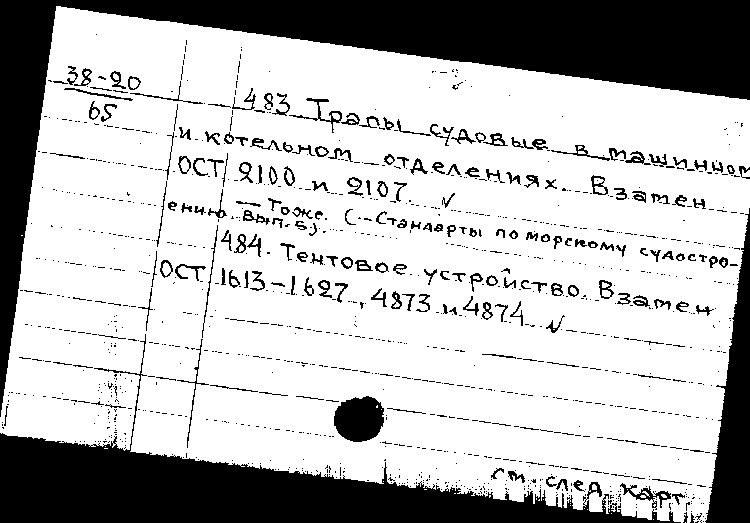 38-20
65
483 Трапы судовые в машинном
и котельном отделениях. Взамен
ОСТ 2100 и 2107. ✓
— Тоже. (-- Стандарты по морскому судостро-
ению. Вып. 5).
484. Тентовое устройство. Взамен
ОСТ 1613-1627, 4873 и 4874 ✓
см. след. карт.